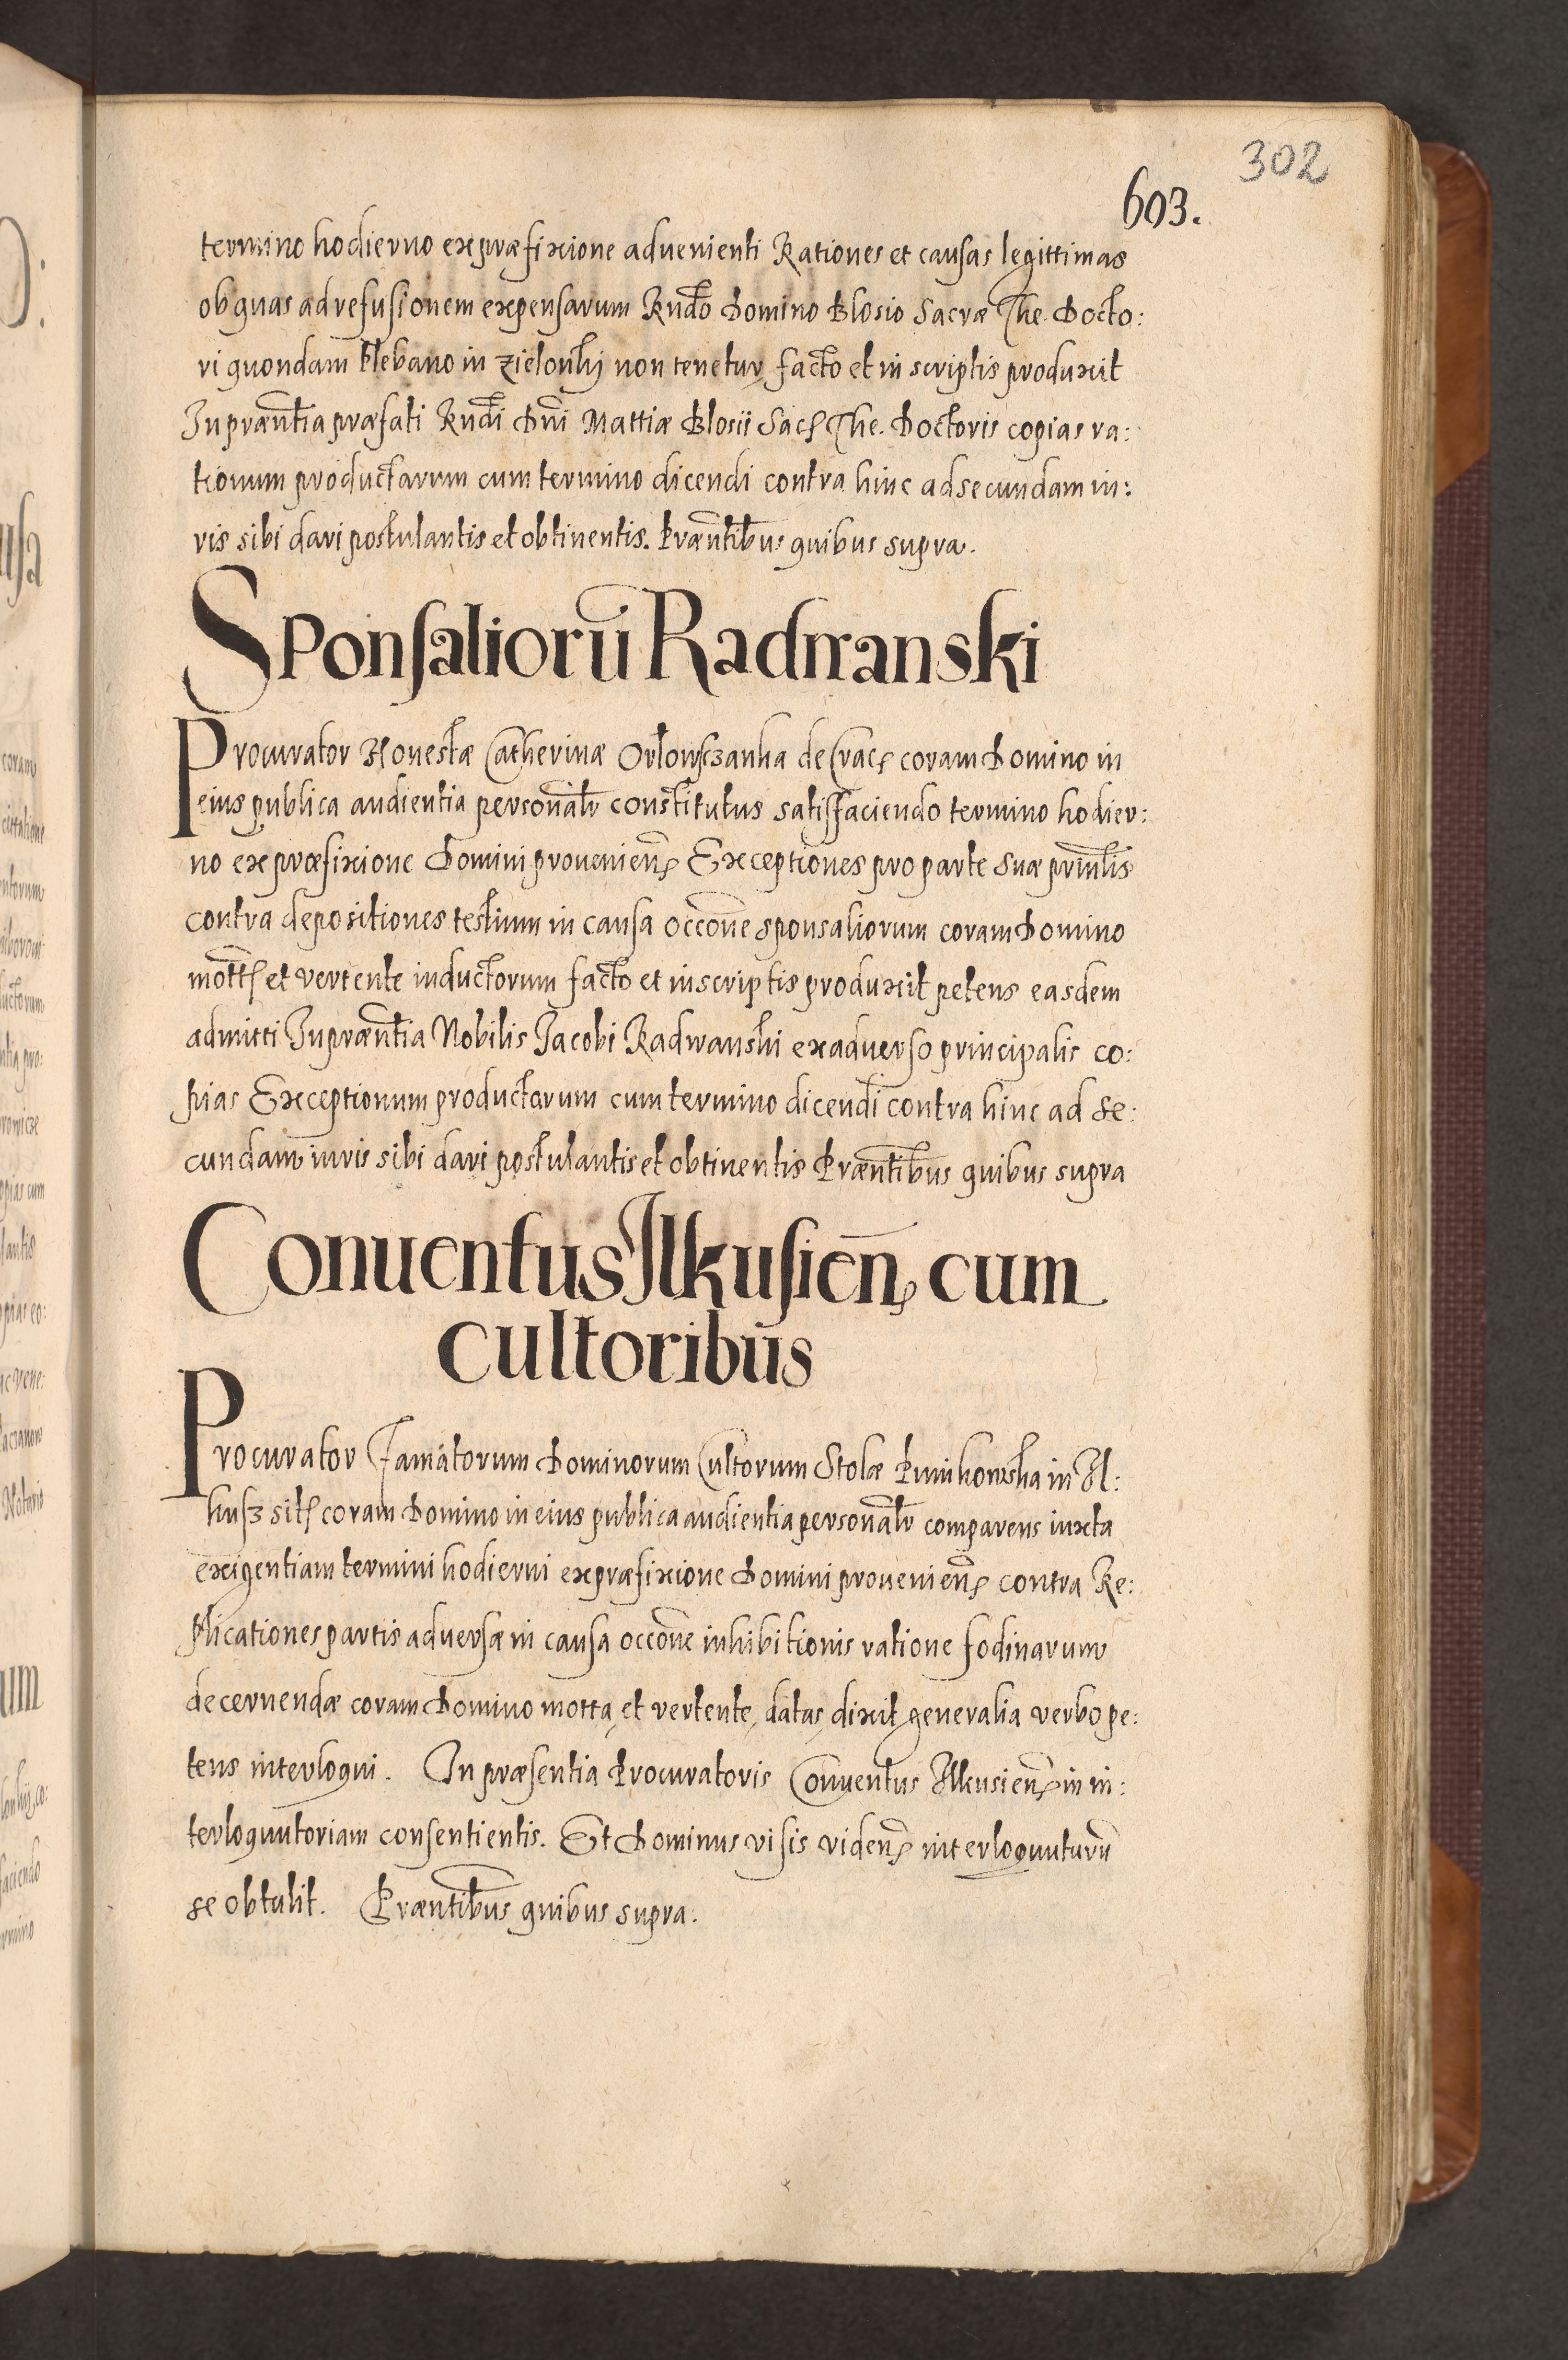 302
603.
termino hodierno ex præfixione aduenienti Rationes et causas legittimas
ob quas ad refusionem expensarum Rndo Domino Blosio Sacræ The. Docto:
ri quondam Plebano in Zielonky non tenetur facto et in scriptis produxit
In præntia præfati Rndi Dni Mattiæ Blosii Sac The. Doctoris copias ra:
tionum productarum cum termino dicendi contra hinc ad secundam iu:
ris sibi dari postulantis et obtinentis. Præntibus quibus supra.
Sponsaliorū Radwanski
Procurator Honestæ Catherinæ Orlowszanka de Crac coram Domino in
eius publica audientia personalr constitutus satisfaciendo termino hodier:
no ex præfixione Domini prouenien Exceptiones pro parte suæ prinlis
contra depositiones testium in causa occone sponsaliorum coram Domino
mott et vertente inductorum facto et in scriptis produxit petens easdem
admitti In præntia Nobilis Jacobi Radwanski ex aduerso principalis co:
pias Exceptionum productarum cum termino dicendi contra hinc ad se:
cundam iuris sibi dari postulantis et obtinentis Præntibus quibus supra
Conuentus Ilkusien cum
cultoribus
Procurator Famatorum Dominorum Cultorum Stolæ Punikowska in Il:
kusz sit coram Domino in eius publica audientia personalr comparens iuxta
exigentiam termini hodierni ex præfixione Domini prouenien contra Re:
plicationes partis aduersæ in causa occone inhibitionis ratione fodinarum
decernendæ coram Domino motta et vertente datas dixit generalia verbo pe:
tens interloqui. In præsentia Procuratoris Conuentus Ilkusien in in:
terloquutoriam consentientis. Et Dominus visis viden interloquuturū
se obtulit. Præntibus quibus supra.